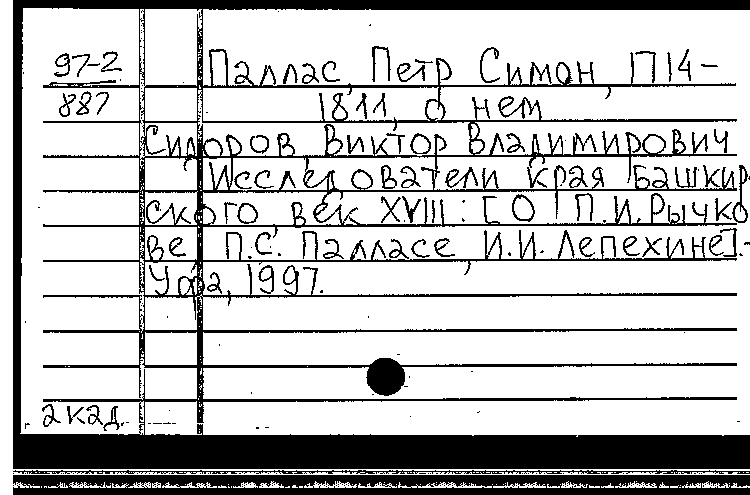 97-2
887
Паллас, Петр Симон, 1714-
1811, о нем
Сидоров, Виктор Владимирович
Исследователи края Башкир-
ского, век XVIII : [О П.И.Рычко
ве, П.С. Палласе, И.И. Лепехине].-
Уфа, 1997.
акад.